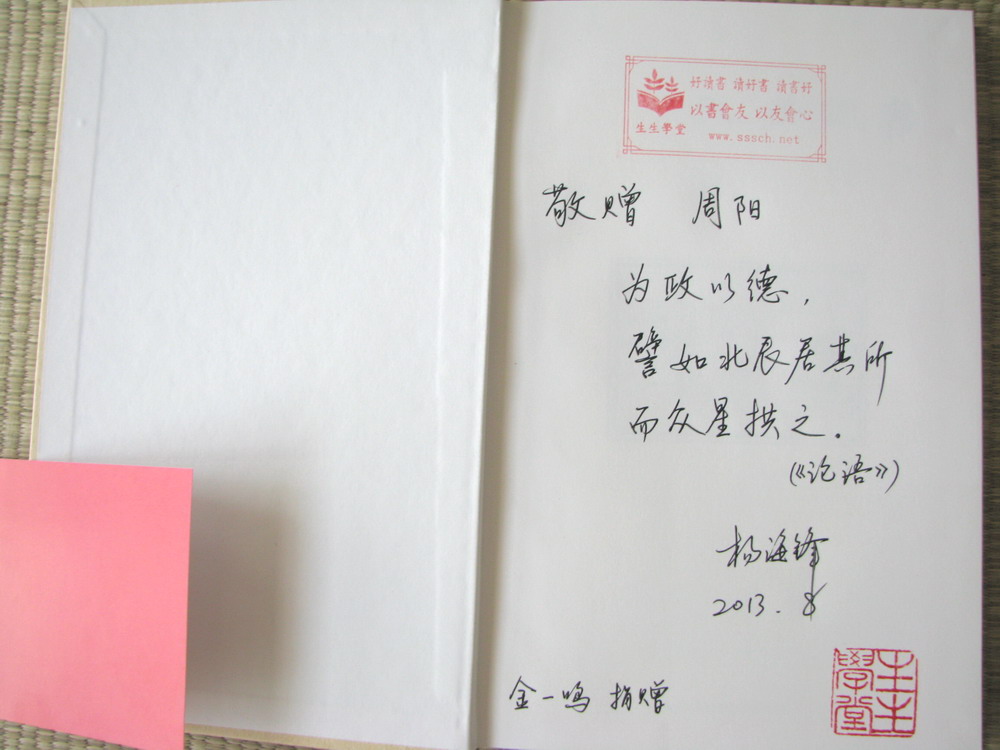 好读书 讀好書 讀書好
以書會友 以友會心
生生學堂
www.sssch.net
敬赠 周阳
为政以德，
譬如北辰居其所
而众星拱之.
(《论语》)
杨海锋
2013.8
金一鸣 捐赠
生生學堂